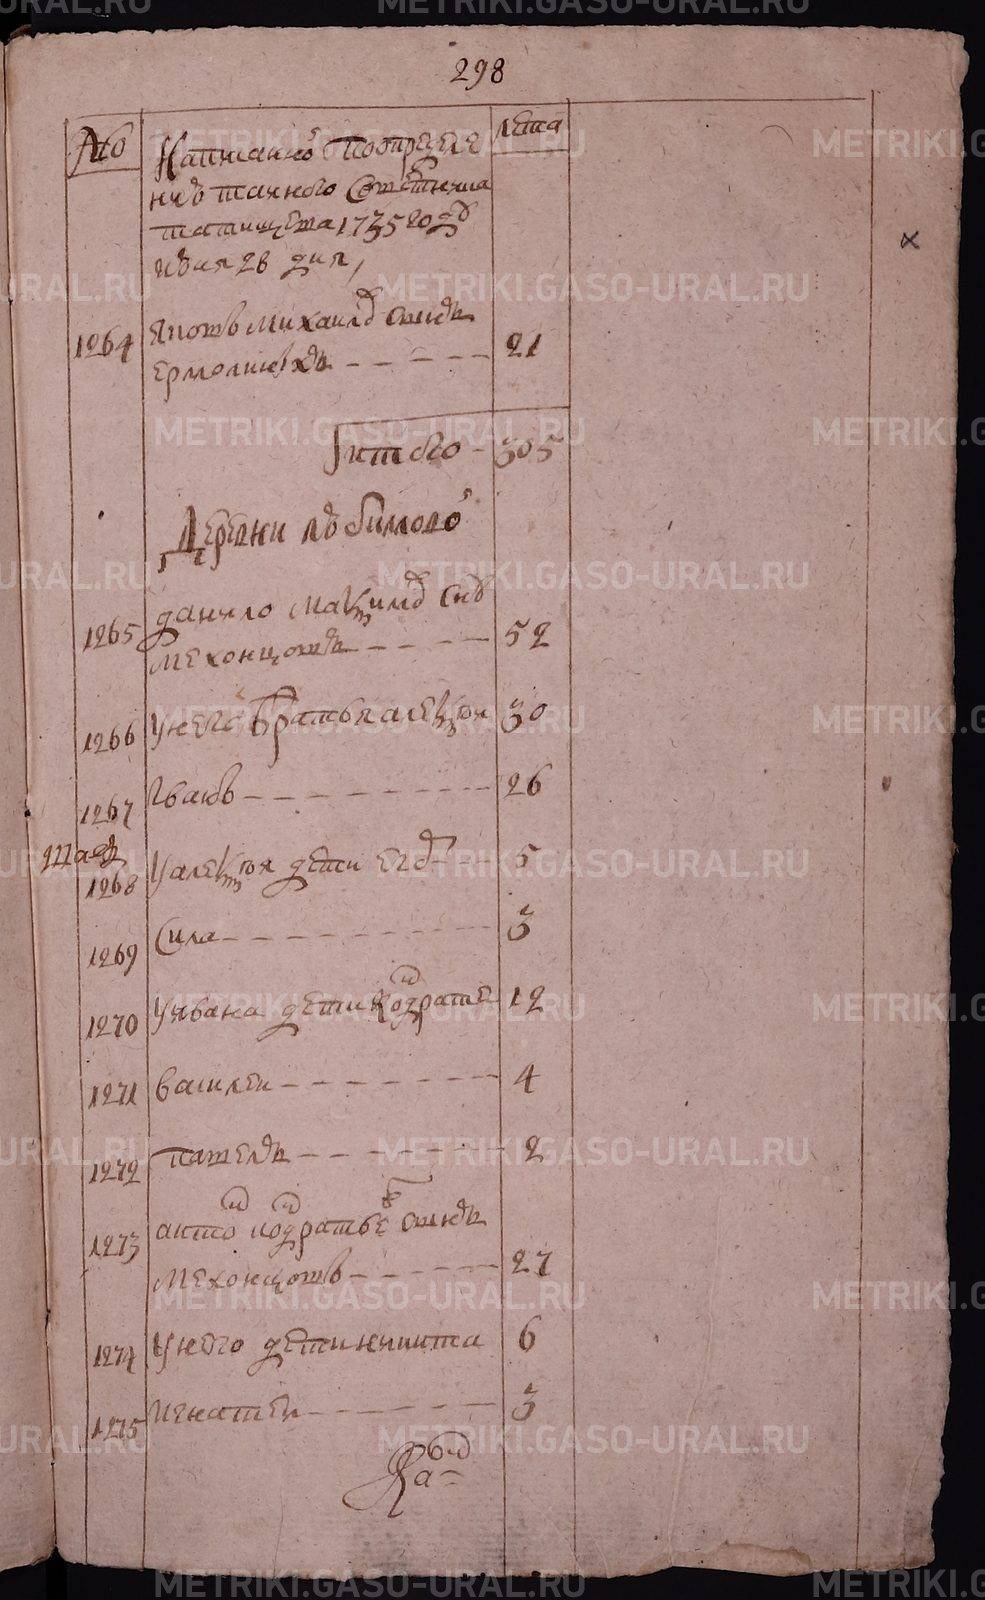 298
№ лета
Написанно по определе
нию тайного советника
татищева 1735 году
июля 28 дня,
1264 яковъ михаиловъ сынъ
ермолинъ 21
итого 305
Деревни
1265 данило максимовъ сынъ
мехонцовъ 52
1266 у него братья алексеи 30
1267 иванъ 26
1268 у алексея дети егоръ 5
1269 Сила 3
1270 у ивана дети кондратеи 12
1271 василеи 4
1272 павелъ 2
1273 антон кондратьев сынъ
мехонцовъ 27
1274 у него дети никита 6
1275 игнатеи 3
METRIKI.GASO-URAL.RU